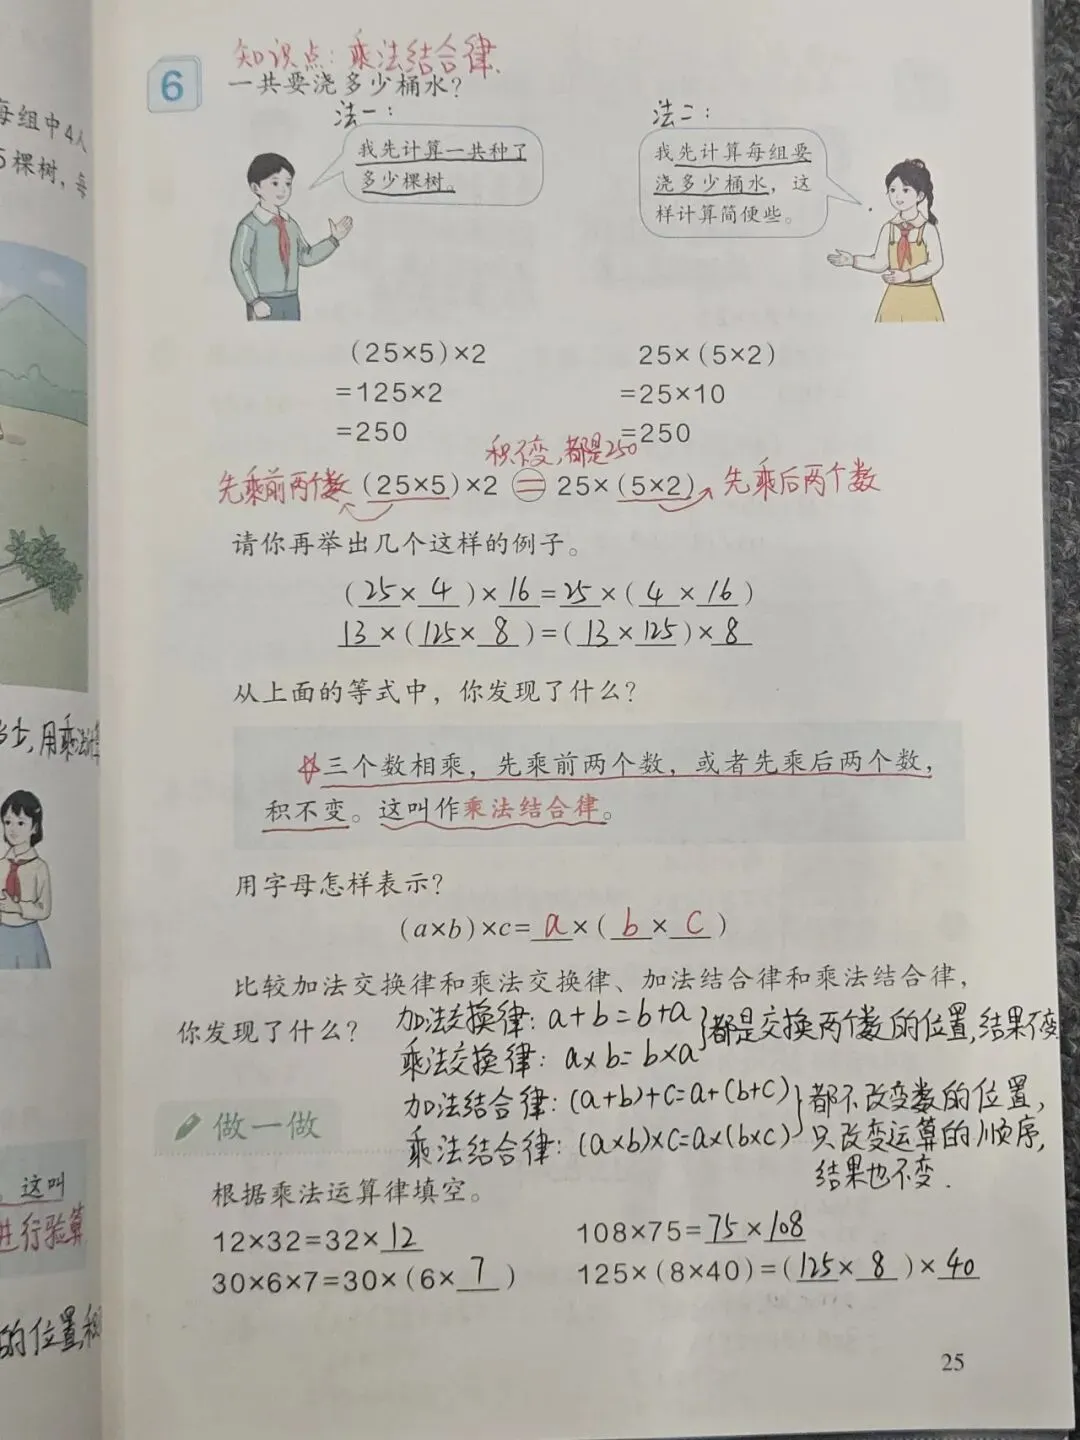 每组中4人
5棵树，每
当少，用乘法计算
。这叫
进行验算
的位置，积
知识点：乘法结合律.
6
一共要浇多少桶水？
法一：
我先计算一共种了
多少棵树。
法二：
我先计算每组要
浇多少桶水，这
样计算简便些。
(25×5)×2
=125×2
=250
25×(5×2)
=25×10
=250
积不变，都是250
先乘前两个数 (25×5)×2 = 25×(5×2) 先乘后两个数
请你再举出几个这样的例子。
(25×4)×16=25×(4×16)
13×(125×8)=(13×125)×8
从上面的等式中，你发现了什么？
三个数相乘，先乘前两个数，或者先乘后两个数，
积不变。这叫作乘法结合律。
用字母怎样表示？
(a×b)×c=a×(b×c)
比较加法交换律和乘法交换律、加法结合律和乘法结合律，
你发现了什么？
加法交换律：a+b=b+a
乘法交换律：a×b=b×a
都是交换两个数的位置，结果不变
加法结合律：(a+b)+c=a+(b+c)
乘法结合律：(a×b)×c=a×(b×c)
都不改变数的位置，
只改变运算的顺序，
结果也不变.
做一做
根据乘法运算律填空。
12×32=32×12
108×75=75×108
30×6×7=30×(6×7)
125×(8×40)=(125×8)×40
25